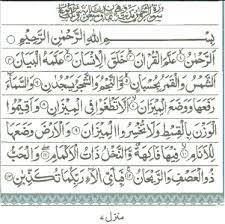 سُوْرَةُ الرَّحْمٰنِ
بِسْمِ اللّٰهِ الرَّحْمٰنِ الرَّحِيْمِ
اَلرَّحْمٰنُ عَلَّمَ الْقُرْاٰنَ خَلَقَ الْاِنْسَانَ عَلَّمَهُ الْبَيَانَ
اَلشَّمْسُ وَالْقَمَرُ بِحُسْبَانٍ وَّالنَّجْمُ وَالشَّجَرُ يَسْجُدٰنِ وَالسَّمَآءَ
رَفَعَهَا وَوَضَعَ الْمِيْزَانَ اَلَّا تَطْغَوْا فِي الْمِيْزَانِ وَاَقِيْمُوا
الْوَزْنَ بِالْقِسْطِ وَلَا تُخْسِرُوا الْمِيْزَانَ وَالْاَرْضَ وَضَعَهَا
لِلْاَنَامِ فِيْهَا فَاكِهَةٌ وَّالنَّخْلُ ذَاتُ الْاَكْمَامِ وَالْحَبُّ
ذُو الْعَصْفِ وَالرَّيْحَانُ فَبِاَيِّ اٰلَآءِ رَبِّكُمَا تُكَذِّبٰنِ
منزل ٧